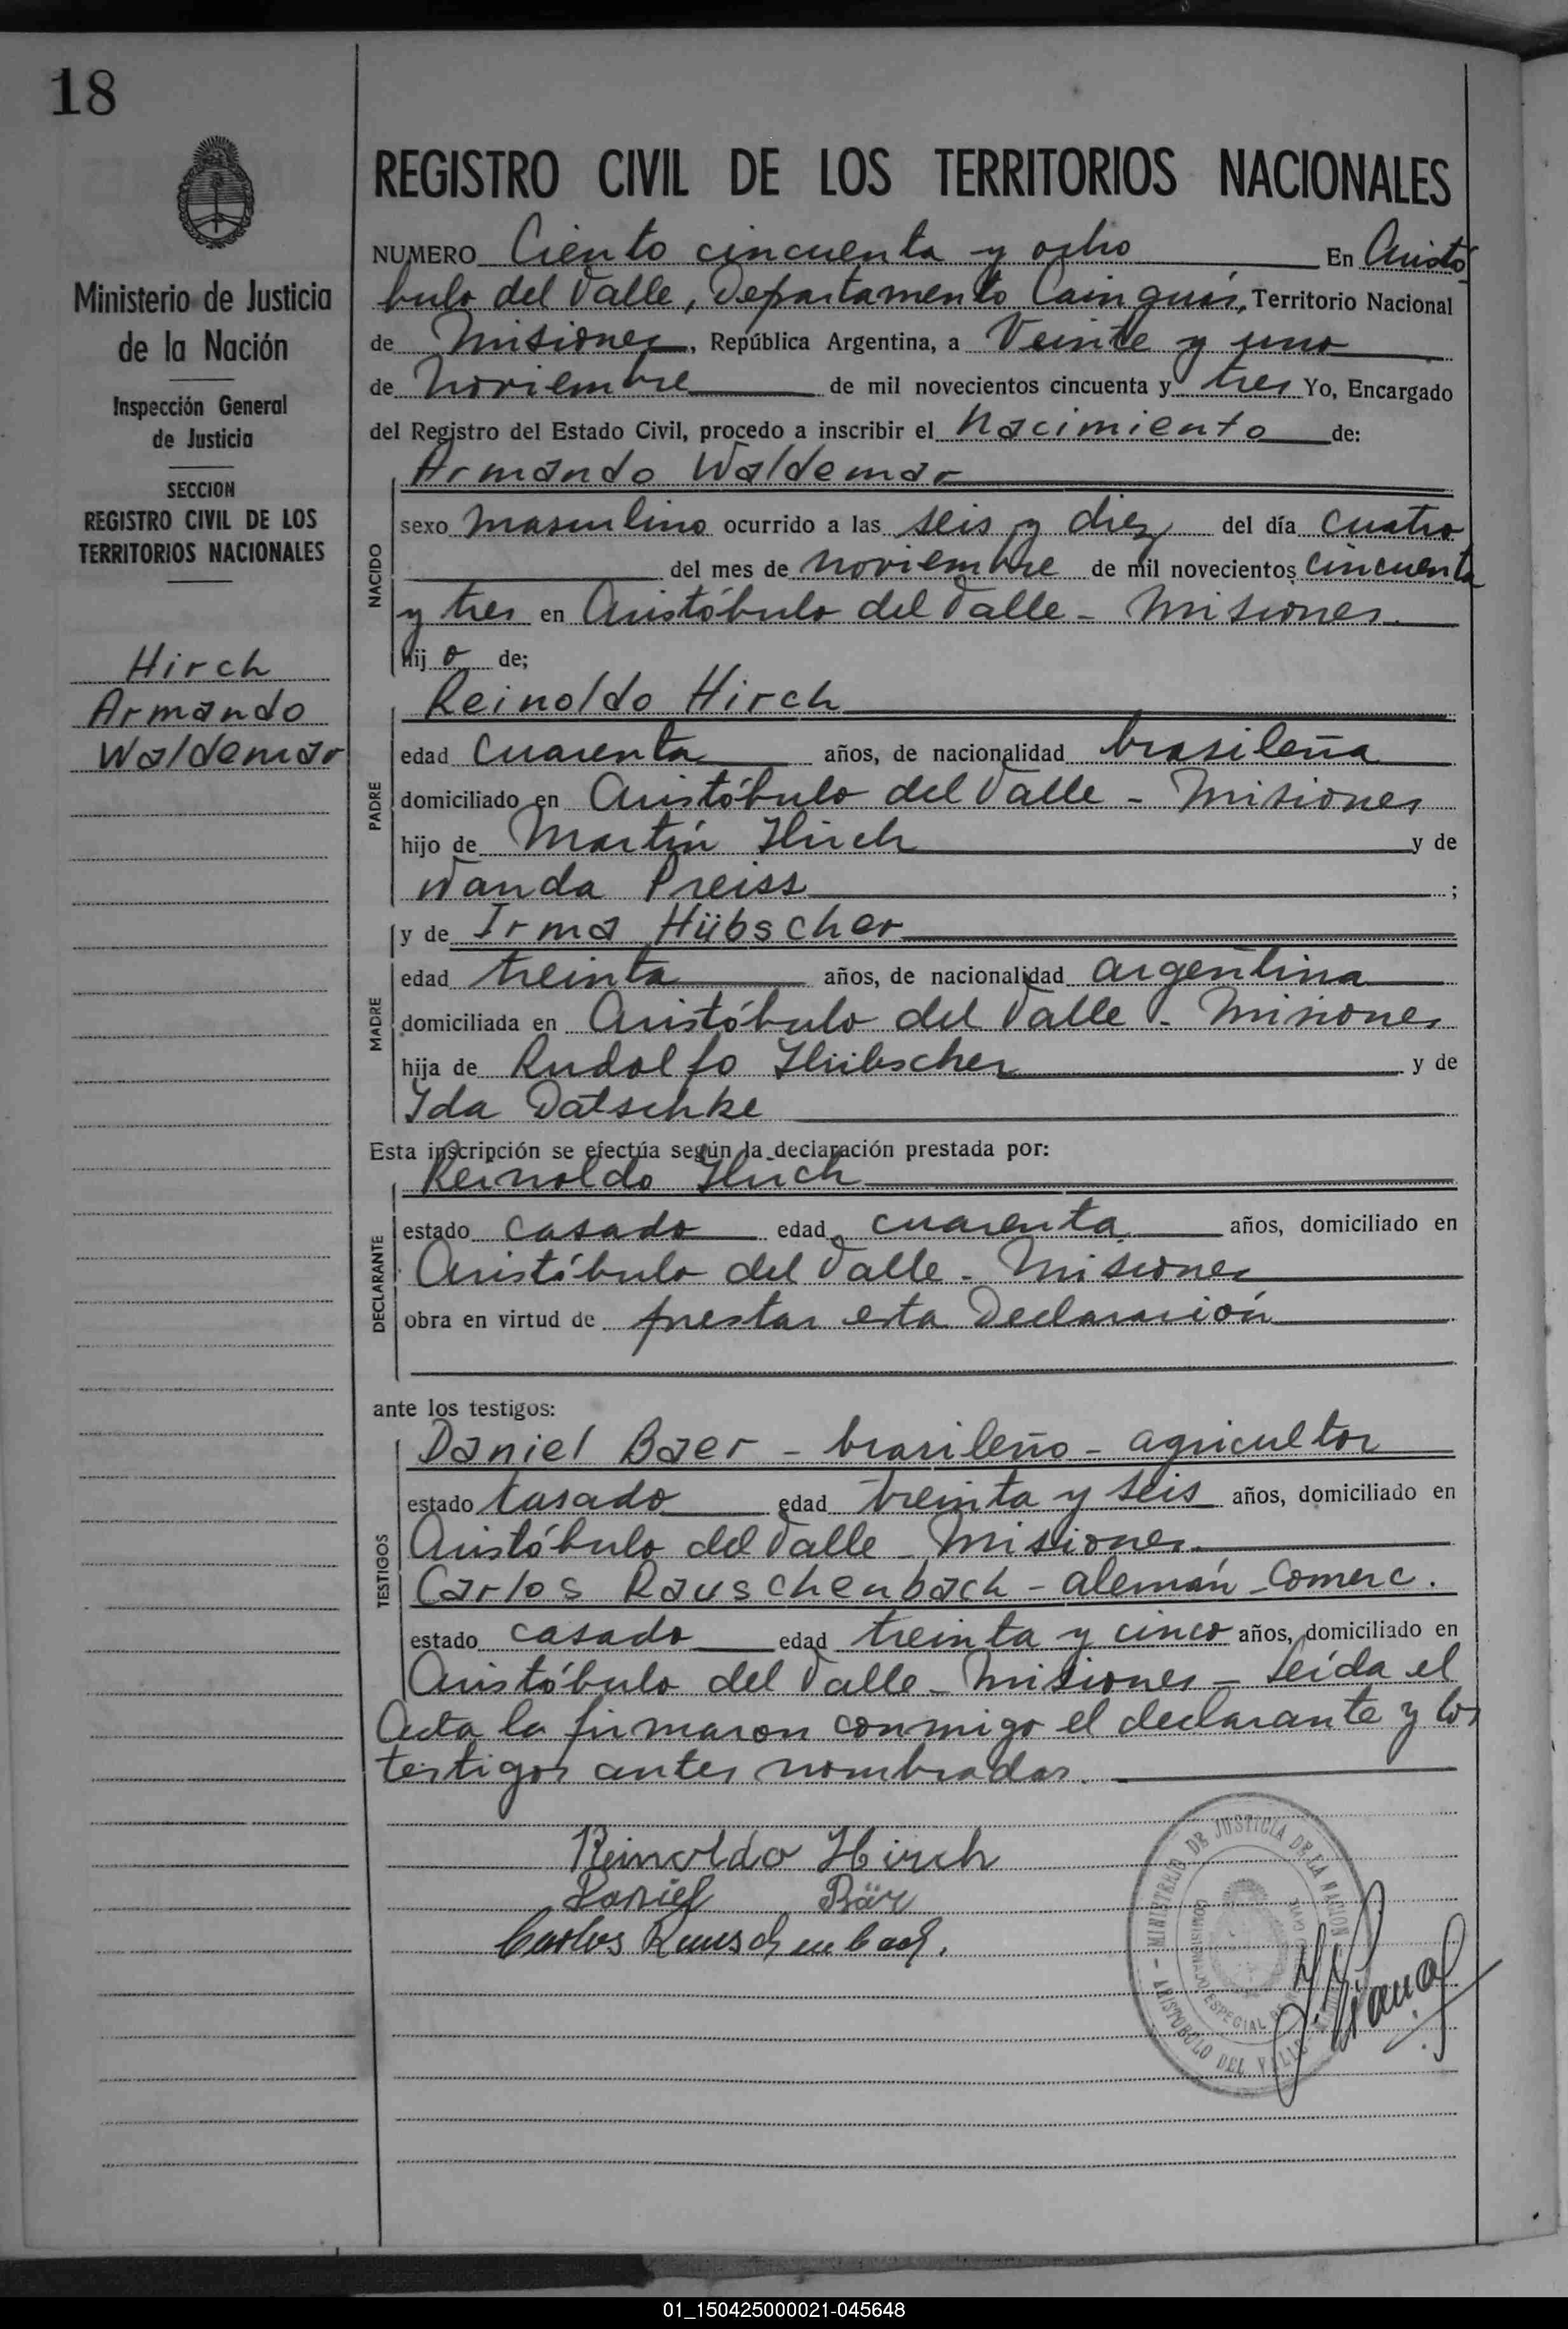 18
Ministerio de Justicia
de la Nación
Inspección General
de Justicia
SECCION
REGISTRO CIVIL DE LOS
TERRITORIOS NACIONALES
Hirch
Armando
Waldemar
REGISTRO CIVIL DE LOS TERRITORIOS NACIONALES
NUMERO Ciento cincuenta y ocho En Aristó
bulo del Valle, Departamento Cainguás, Territorio Nacional
de Misiones, República Argentina, a Veinte y uno
de Noviembre de mil novecientos cincuenta y tres Yo, Encargado
del Registro del Estado Civil, procedo a inscribir el Nacimiento de:
Armando Waldemar
NACIDO
sexo masculino ocurrido a las seis y diez del día cuatro
del mes de noviembre de mil novecientos cincuenta
y tres en Aristóbulo del Valle - Misiones
hij o de;
Reinoldo Hirch
PADRE
edad cuarenta años, de nacionalidad brasileña
domiciliado en Aristóbulo del Valle - Misiones
hijo de Martín Hirch y de
Wanda Preiss ;
y de Irma Hübscher
MADRE
edad treinta años, de nacionalidad argentina
domiciliada en Aristóbulo del Valle - Misiones
hija de Rudolfo Hübscher y de
Ida Datschke
Esta inscripción se efectúa según la declaración prestada por:
Reinoldo Hirch
DECLARANTE
estado casado edad cuarenta años, domiciliado en
Aristóbulo del Valle - Misiones
obra en virtud de prestar esta Declaración
ante los testigos:
Daniel Baer - brasileño - agricultor
TESTIGOS
estado casado edad treinta y seis años, domiciliado en
Aristóbulo del Valle - Misiones
Carlos Rauschenbach - alemán - Comerc.
estado casado edad treinta y cinco años, domiciliado en
Aristóbulo del Valle - Misiones - Leída el
Acta la firmaron conmigo el declarante y los
testigos antes nombrados.
Reinoldo Hirch
Daniel Bär
Carlos Rauschenbach.
MINISTERIO DE JUSTICIA DE LA NACION
ESPECIAL
ARISTOBULO DEL VALLE
01_150425000021-045648